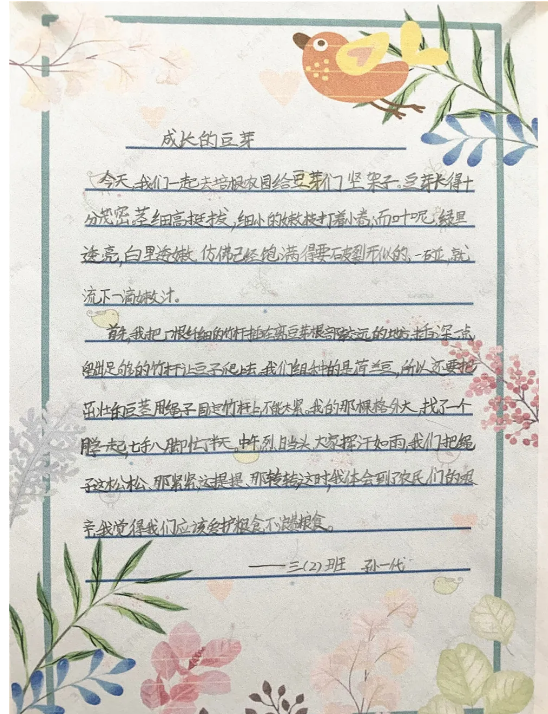 成长的豆芽
今天,我们一起去培根农园给豆芽们竖架子。豆芽长得十
分茂密,茎细高挺拔,细小的嫩枝打着小卷,而叶呢,绿里
透亮,白里透嫩,仿佛已经饱满得要破到开似的,一碰,就
流下一滴嫩汁。
首先,我把一根细细的竹杆插在离豆芽根部较远的地方,插深一点
留出足够的竹杆让豆子爬上去。我们组种的是荷兰豆,所以还要把
茁壮的豆茎用绳子固定竹杆上不能太紧。我的那棵格外大,找了一个
腾一起,七手八脚忙半天,中午烈日当头大家挥汗如雨,我们把绳
子这松松、那紧紧,这提提、那转转,这时,我体会到了农民们的艰
辛,我觉得我们应该爱护粮食不浪费粮食。
——三(2)班 孙一代